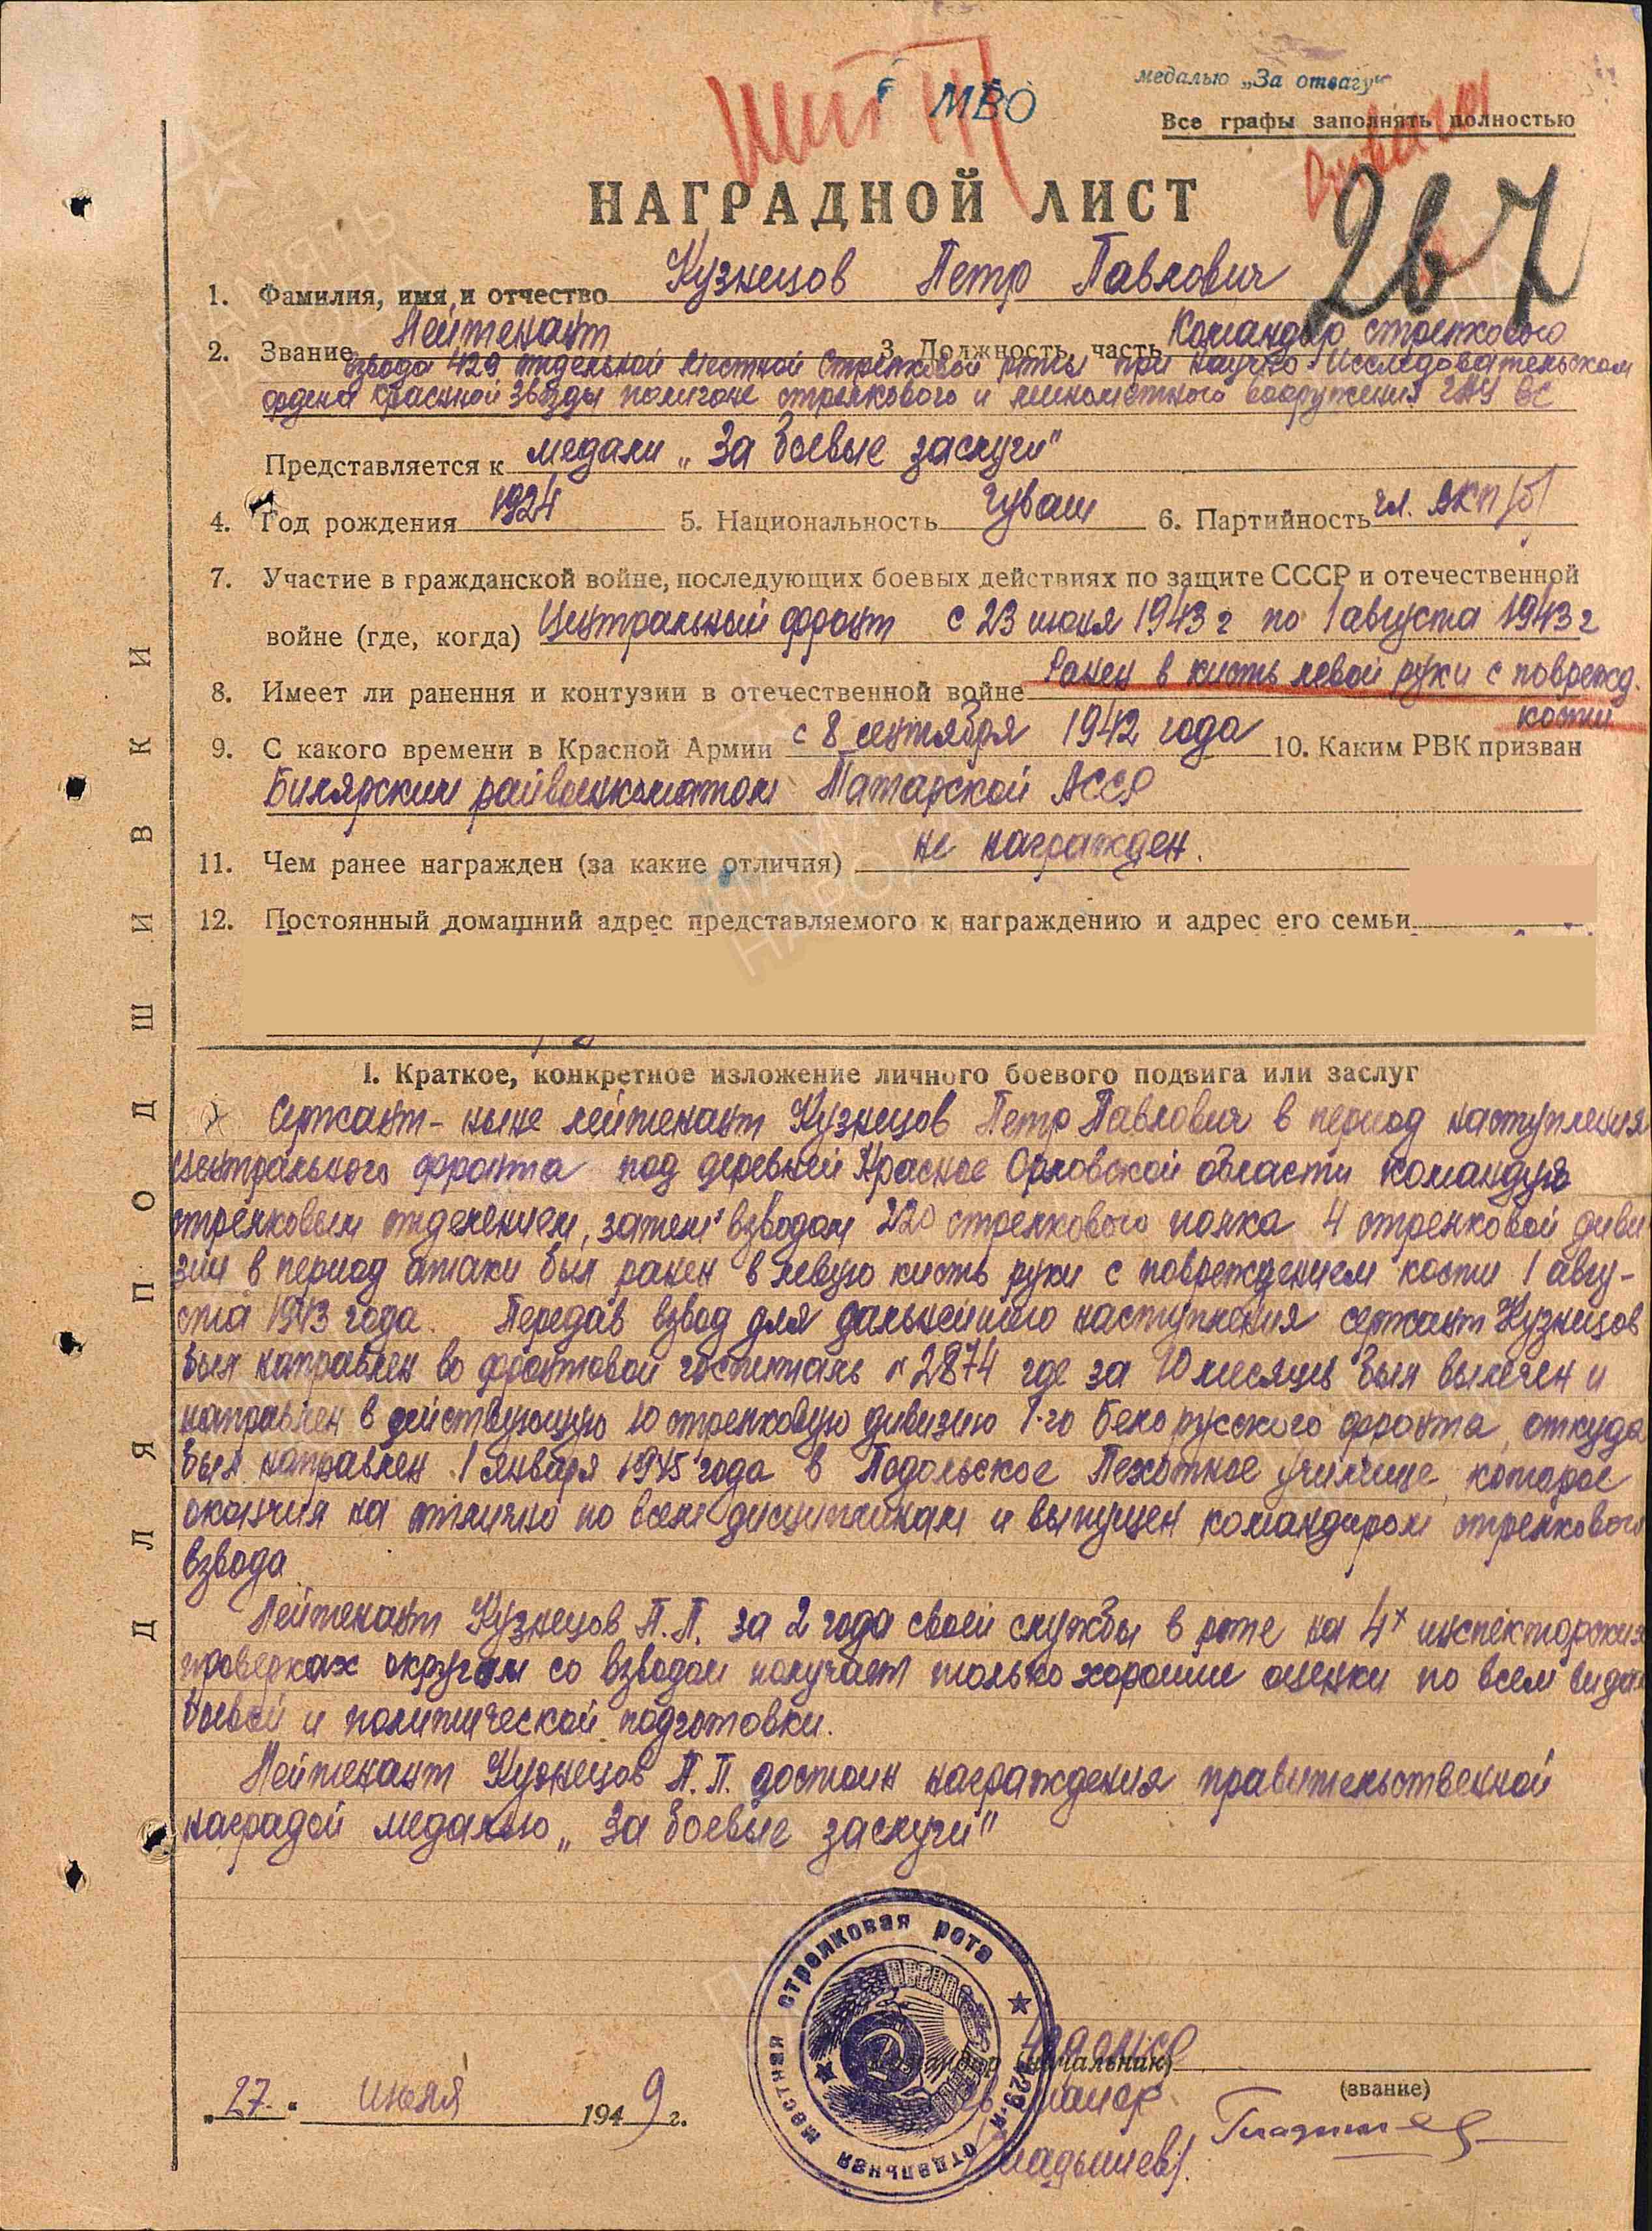 МВО
медалью „За отвагу“
Все графы заполнять полностью
267
НАГРАДНОЙ ЛИСТ
1. Фамилия, имя и отчество Кузнецов Петр Павлович
2. Звание Лейтенант 3. Должность, часть Командир стрелкового
взвода 429 отдельной Местной Стрелковой роты при Научно-Исследовательском
ордена Красной Звезды полигоне стрелкового и минометного вооружения ГАУ ВС
Представляется к медали „За боевые заслуги"
4. Год рождения 1924 5. Национальность Чуваш 6. Партийность чл. ВКП/б/
7. Участие в гражданской войне, последующих боевых действиях по защите СССР и отечественной
войне (где, когда) Центральный фронт с 23 июня 1943 г по 1 августа 1943 г
8. Имеет ли ранения и контузии в отечественной войне Ранен в кисть левой руки с поврежд.
кости
9. С какого времени в Красной Армии с 8 сентября 1942 года 10. Каким РВК призван
Билярским райвоенкоматом Татарской АССР
11. Чем ранее награжден (за какие отличия) не награжден.
12. Постоянный домашний адрес представляемого к награждению и адрес его семьи
I. Краткое, конкретное изложение личного боевого подвига или заслуг
Сержант - ныне лейтенант Кузнецов Петр Павлович в период наступления
центрального фронта под деревней Красное Орловской области командуя
стрелковым отделением, затем взводом 220 стрелкового полка 4 стрелковой диви
зии в период атаки был ранен в левую кисть руки с повреждением кости 1 авгу-
ста 1943 года. Передав взвод для дальнейшего наступления сержант Кузнецов
был направлен во фронтовой госпиталь № 2874 где за 10 месяцев был вылечен и
направлен в действующую 10 стрелковую дивизию 1-го Белорусского фронта, откуда
был направлен 1 января 1945 года в Подольское Пехотное училище, которое
окончил на отлично по всем дисциплинам и выпущен командиром стрелкового
взвода
Лейтенант Кузнецов П.П. за 2 года своей службы в роте на 4х инспекторских
проверках округам со взводом получает только хорошие оценки по всем видам
боевой и политической подготовки.
Лейтенант Кузнецов П.П. достоин награждения правительственной
наградой медалью „За боевые заслуги"
429-я отдельная местная стрелковая рота
Командир (начальник)
(звание)
гв. майор
„27" июня 1949 г.
/Гладышев/.
ДЛЯ ПОДШИВКИ
ПАМЯТЬ НАРОДА